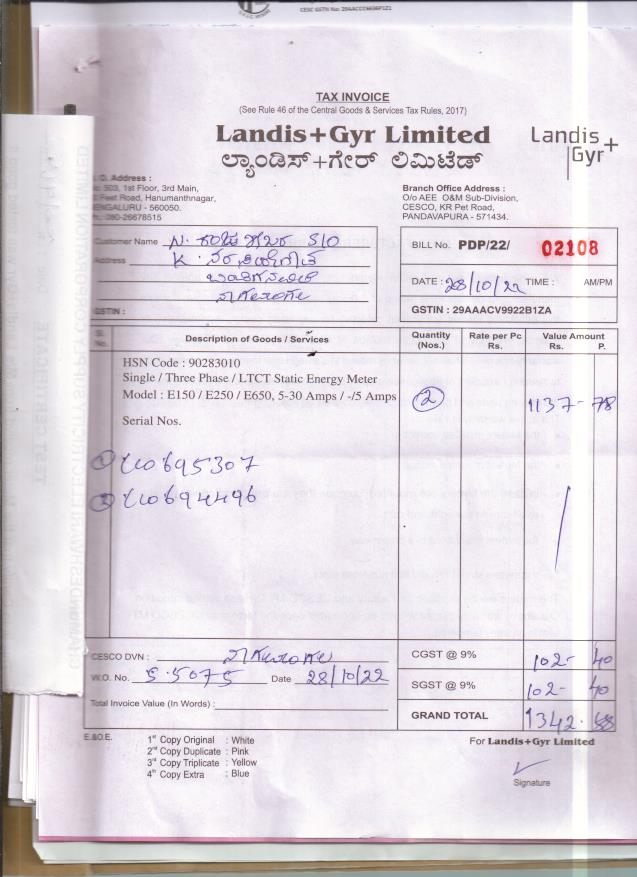 CESC GSTN No: 29AACCC9636P1Z1
TAX INVOICE
(See Rule 46 of the Central Goods & Services Tax Rules, 2017)
Landis+Gyr Limited
Landis+
Gyr
ಲ್ಯಾಂಡಿಸ್+ಗೇರ್ ಲಿಮಿಟೆಡ್
Address :
503, 1st Floor, 3rd Main,
Feet Road, Hanumanthnagar,
BENGALURU - 560050.
080-26678515
Branch Office Address :
O/o AEE O&M Sub-Division,
CESCO, KR Pet Road,
PANDAVAPURA - 571434.
Customer Name S/O
Address K.
GSTIN :
BILL No. PDP/22/ 02108
DATE : 28/10/22 TIME : AM/PM
GSTIN : 29AAACV9922B1ZA
Sl. No. Description of Goods / Services Quantity (Nos.) Rate per Pc Rs. Value Amount Rs. P.
HSN Code : 90283010
Single / Three Phase / LTCT Static Energy Meter
Model : E150 / E250 / E650, 5-30 Amps / -/5 Amps 2 1137-78
Serial Nos.
1 0695307
2 0694496
CESCO DVN :
W.O. No. S.5075 Date 28/10/22
Total Invoice Value (In Words) :
CGST @ 9% 102-40
SGST @ 9% 102-40
GRAND TOTAL 1342.
E.&O.E.
1st Copy Original : White
2nd Copy Duplicate : Pink
3rd Copy Triplicate : Yellow
4th Copy Extra : Blue
For Landis+Gyr Limited
Signature